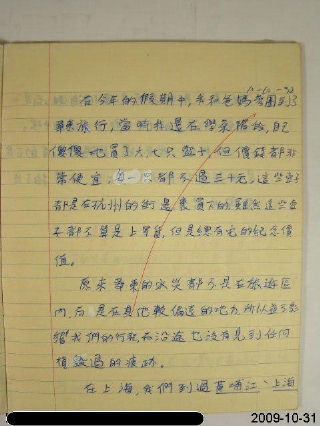 在今年的假期中,我和爸媽參團到了
華東旅行,當時我還在學茶階段,自己
傻傻地買了大大只盤,但價錢都非
常便宜,每一只都不過三十元,這些
都是在杭州的街邊買下的,雖然這些
子都不算是上等,但是總有它的紀念價
值。
原來華東的水災都不是在旅遊區
內,而是在其他較偏遠的地方,所以並不影
響我們的行程,而沿途也沒有見到任何
損毀過的痕跡。
在上海,我們到過黃埔江、上海
2009-10-31